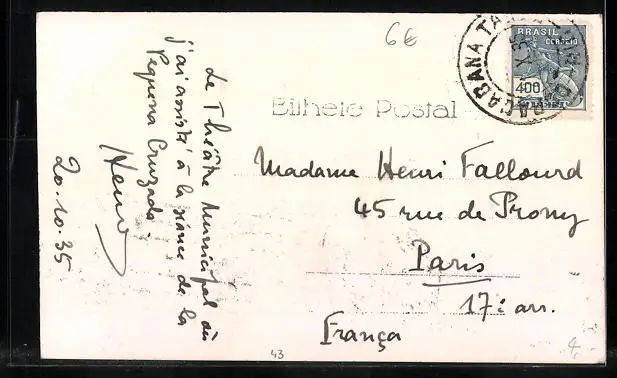 6€
BRASIL
CORREIO
400
COPACABANA
Bilhete Postal
Le Théâtre Municipal où
j'ai assisté à la séance de la
Pequena Cruzada -
Henri
20.10.35
Madame Henri Fallourd
45 rue de Prony
Paris
17e arr.
França
43
4